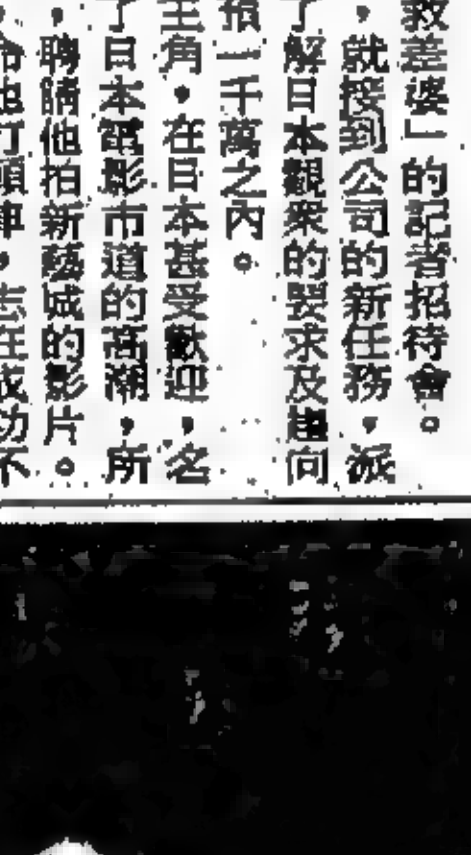 救差婆」的記者招待會。
，就接到公司的新任務，派
了解日本觀眾的要求及趨向
預一千萬之內。
主角，在日本甚受歡迎，名
了日本電影市道的高潮，所
，聘請他拍新藝城的影片。
命他打頭陣，志在成功不